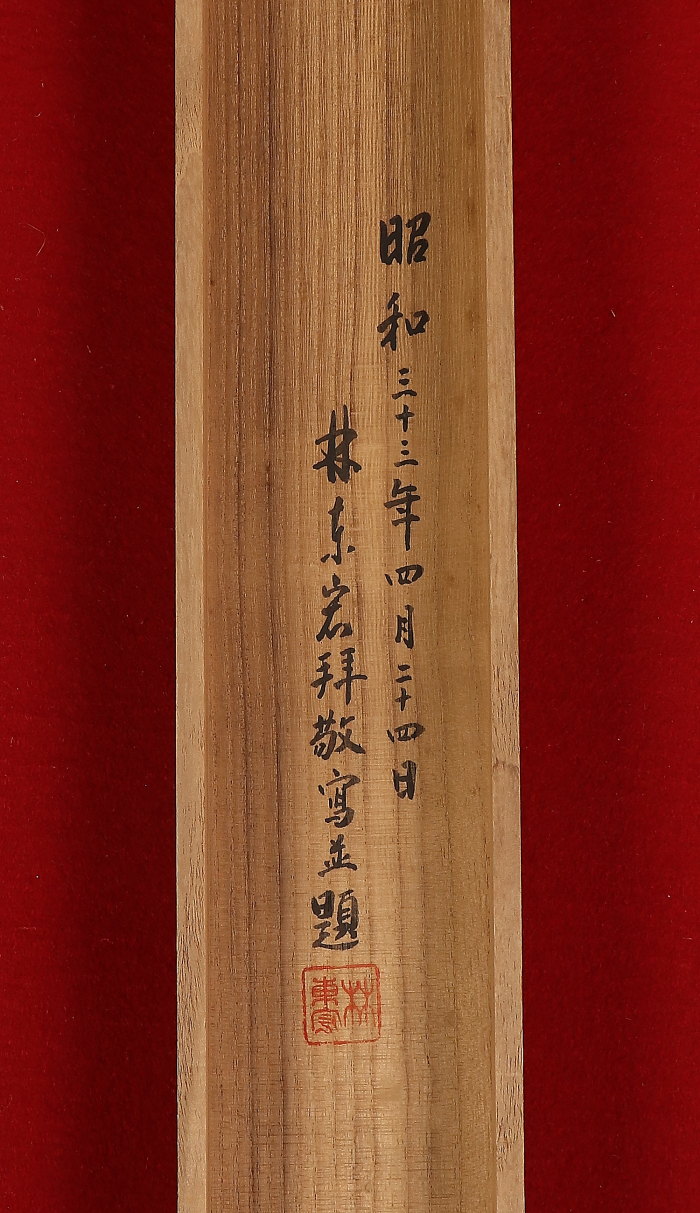 昭和三十三年四月二十四日
林東拜敬寫並題
林東